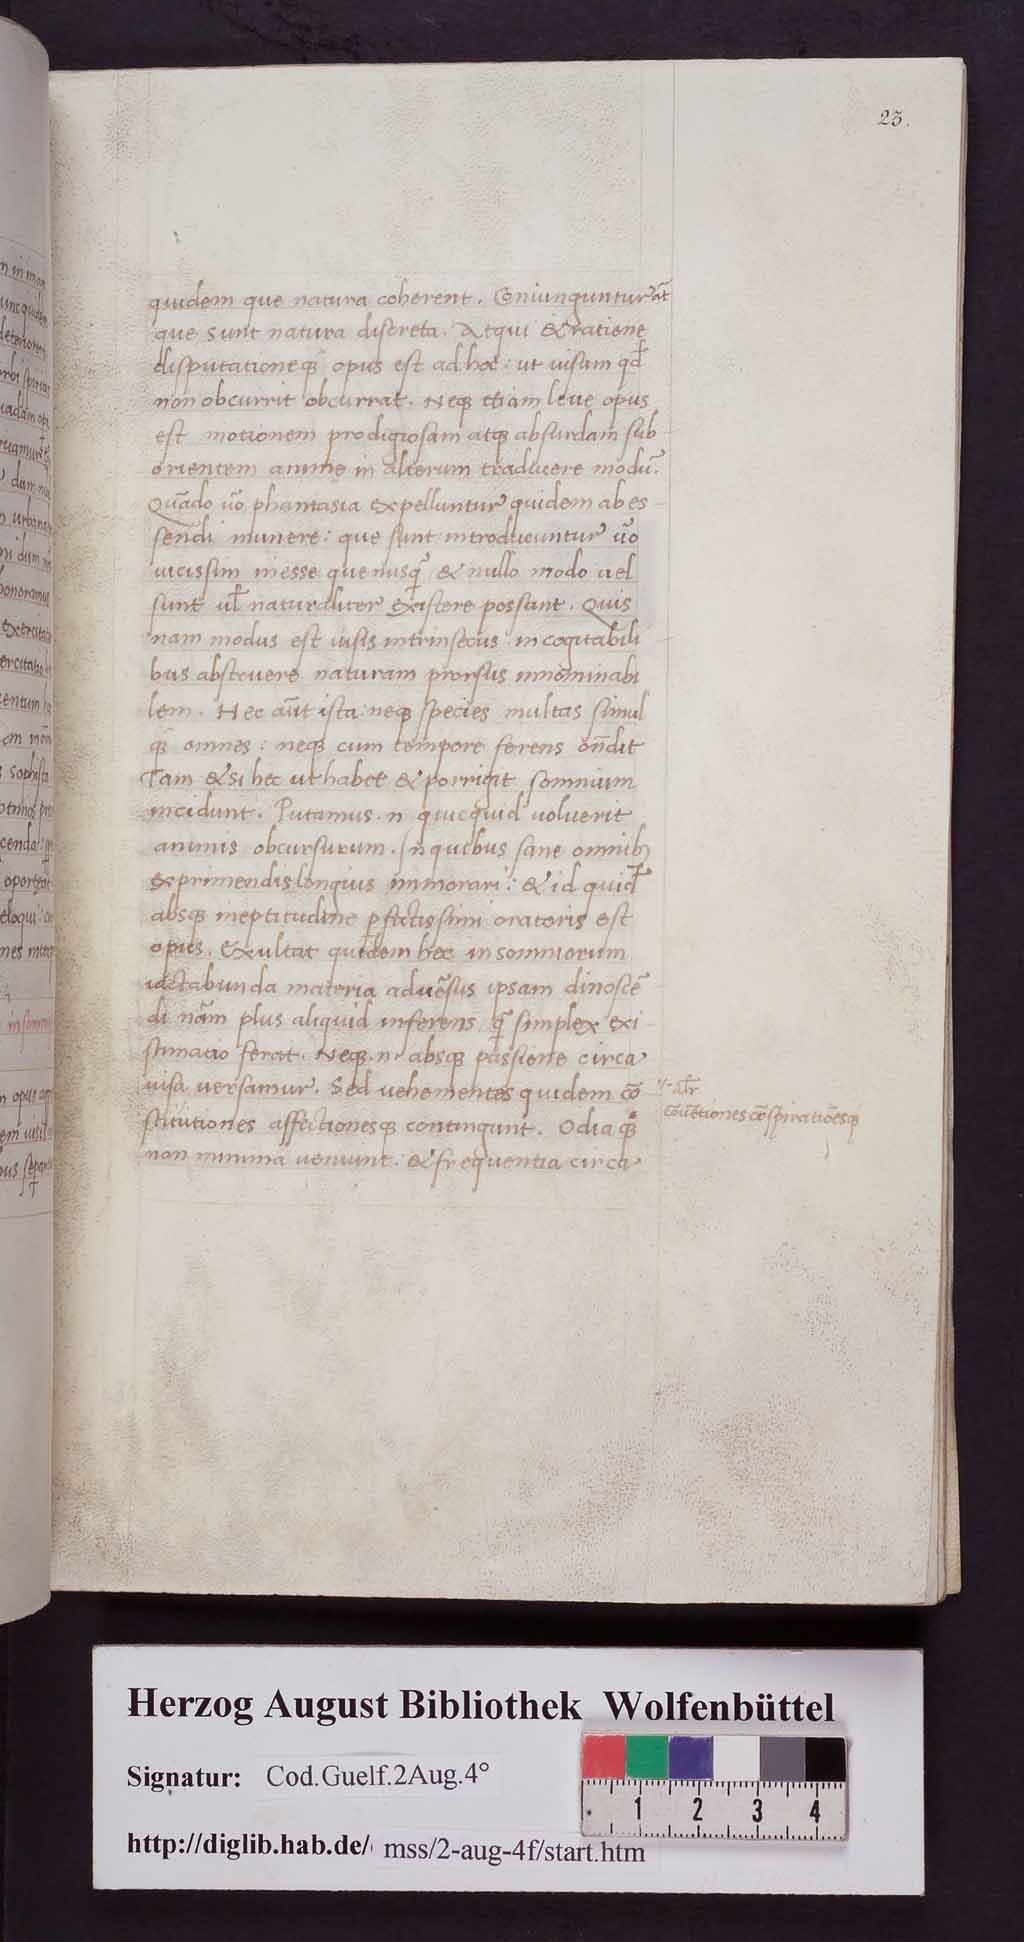 23.
quidem que natura coherent. Coniunguntur at̄
que sunt natura discreta. Atqui & ratione
disputationeq; opus est ad hoc: ut uisum qđ
non obcurrit obcurrat. Neq; etiam leue opus
est motionem prodigiosam atq; absurdam sub
orientem anime in alterum traducere modū.
Quādo ūo phantasia expelluntur quidem ab es-
sendi munere: que sunt introducuntur ūo
uicissim inesse que nusq̄ & nullo modo uel
sunt ul̄ naturaliter existere possunt. Quis
nam modus est iusis intrinsecus incogitabili
bus abstruere naturam prorsus innominabi
lem. Hec aūt ista: neq; species multas simul
q̄ omnes: neq; cum tempore ferens ōndit
Tam & si hec ut habet & porrigit somnium
incidunt. Putamus .n. quicquid uoluerit
animis obcursurum. In quibus sane omnib;
exprimendis longius immorari: & id quid̄
absq; ineptitudine pfectissimi oratoris est
opus. Exultat quidem hec insomniorum
iactabunda materia aduersus ipsam dinoscē-
di nām plus aliquid inferens q̄ simplex exi-
stimatio ferat. Neq; .n. absq; passione circa
uisa uersamur. Sed uehementes quidem cō
stitutiones affectionesq; contingunt. Odia q;
non minima ueniunt: & frequentia circa
al̄r
cōuētiones cōspiratiōesq;
Herzog August Bibliothek Wolfenbüttel
Signatur: Cod.Guelf.2Aug.4°
1 2 3 4
http://diglib.hab.de/ mss/2-aug-4f/start.htm